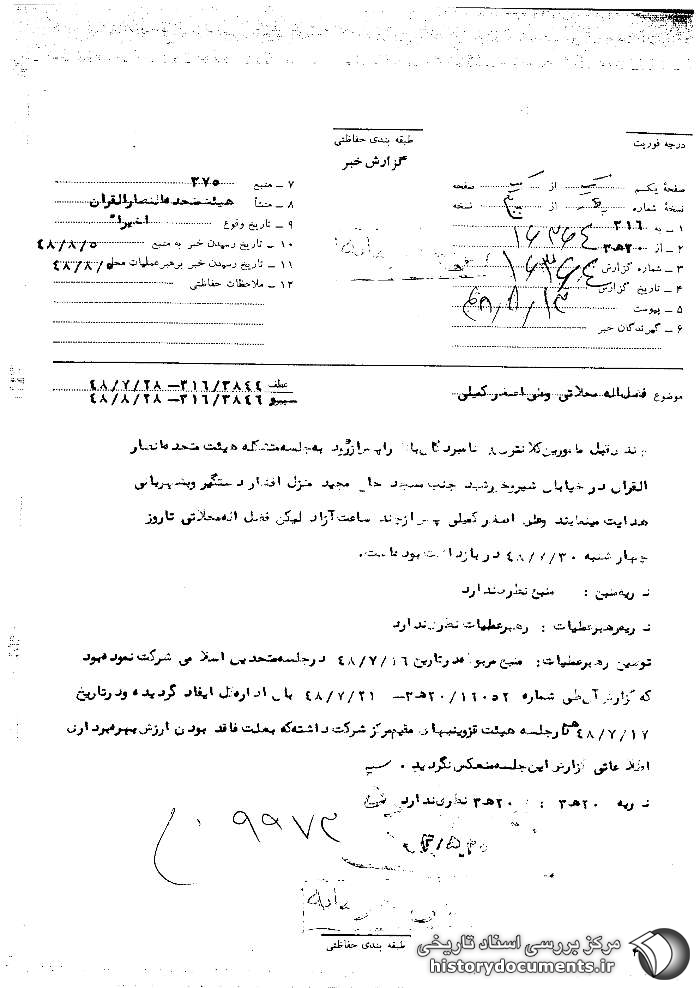 درجه فوریت
طبقه بندی حفاظتی
گزارش خبر
صفحهٔ یکم از صفحه
نسخهٔ شماره از نسخه
۱ ـ به ۳۱۶
۲ ـ از ۲۰هـ۳
۳ ـ شماره گزارش ۱۶۳۶۴
۴ ـ تاریخ گزارش ۴۸/۸/۱۳
۵ ـ پیوست
۶ ـ گیرندگان خبر
۷ ـ منبع ۳۷۵
۸ ـ منشأ هیئت متحده انصارالقران
۹ ـ تاریخ وقوع اخیراً
۱۰ ـ تاریخ رسیدن خبر به منبع ۴۸/۸/۵
۱۱ ـ تاریخ رسیدن خبر برهبرعملیات محل ۴۸/۸/۵
۱۲ ـ ملاحظات حفاظتی
موضوع فضل‌اله محلاتی وعلی اصغر کمیلی
عطف ۳۱۶/۳۸۴۴ ـ ۴۸/۷/۲۸
پیرو ۳۱۶/۳۸۴۶ ـ ۴۸/۸/۲۸
چند قبل مامورین کلانتری نامبردگان بالا را پس ازورود به جلسه متشکله هیئت متحده انصار
القران در خیابان شیروخورشید جنب مسجد حاج مجید منزل افشار دستگیر وبشهربانی
هدایت مینمایند وعلی اصغر کمیلی پس ازچند ساعت آزاد لیکن فضل اله محلاتی تاروز
چهارشنبه ۴۸/۷/۳۰ در بازداشت بوده است.
نظریه منبع : منبع نظری ندارد
نظریه رهبر عملیات : رهبر عملیات نظری ندارد
توضیح رهبر عملیات: منبع مربوطه در تاریخ ۴۸/۷/۱۶ در جلسه متحدین اسلامی شرکت نموده بود
که گزارش آن طی شماره ۲۰/۱۲۰۵۲هـ۳ ـ ۴۸/۷/۲۱ بان اداره کل ایفاد گردیده ودرتاریخ
۴۸/۷/۱۷ در جلسه هیئت قزوینیهای مقیم مرکز شرکت داشته که بعلت فاقد بودن ارزش بهره برداری
اطلاعاتی گزارش این جلسه منعکس نگردید .
نظریه ۲۰هـ۳ : ۲۰هـ۳ نظری ندارد
طبقه بندی حفاظتی
مرکز بررسی اسناد تاریخی
historydocuments.ir